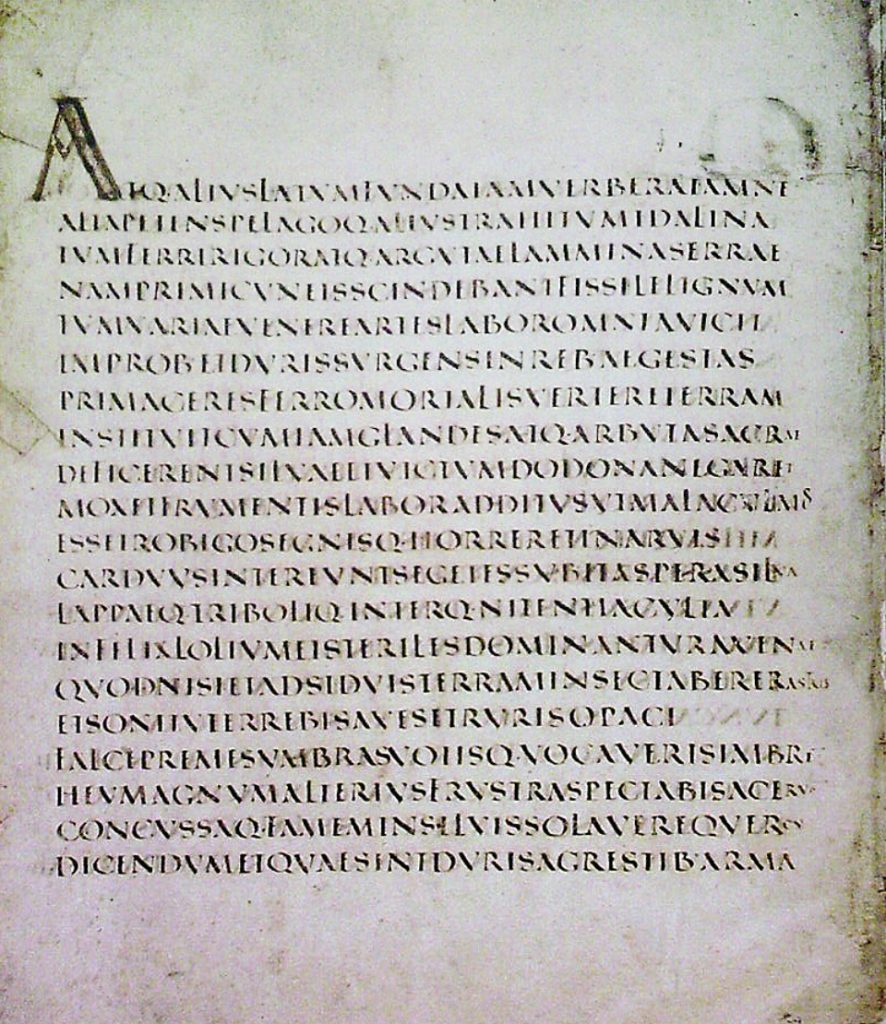 ATQ·ALIVSLATVMFVNDAIAMVERBERATAMNE
ALTAPETENSPELAGOQ·ALIVSTRAHITVMIDALINA
TVMFERRIRIGORATQ·ARGVTAELAMMINASERRAE
NAMPRIMICVNEISSCINDEBANTFISSILELIGNVM
TVMVARIAEVENEREARTESLABOROMNIAVICIT
IMPROBETDVRISSVRGENSINREB·AEGESTAS
PRIMACERESFERROMORTALISVERTERETERRAM
INSTITVITCVMIAMGLANDESATQ·ARBVTASACRAE
DEFICERENTSILVAEETVICTVMDODONANEGARET
MOXETFRVMENTISLABORADDITVSVTMALACVLMOS
ESSETROBIGOSEGNISQ·HORRERETINARVIS
CARDVVSINTEREVNTSEGETESSVBITASPERASILVA
LAPPAEQ·TRIBOLIQ·INTERQ·NITENTIACVLTA
INFELIXLOLIVMETSTERILESDOMINANTVRAVENAE
QVODNISIETADSIDVISTERRAMINSECTABERERASTRIS
ETSONITVTERREBISAVESETRVRISOPACI
FALCEPREMESVMBRASVOTISQ·VOCAVERISIMBRE
HEVMAGNVMALTERIVSFRVSTRASPECTABISACERV
CONCVSSAQ·FAMEMINSILVISSOLAVEREQVERCV
DICENDVMETQVAESINTDVRISAGRESTIB·ARMA